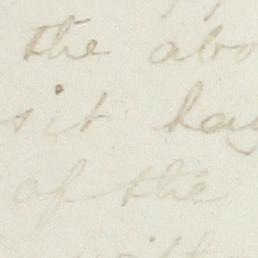 the abo
sit hay
of the